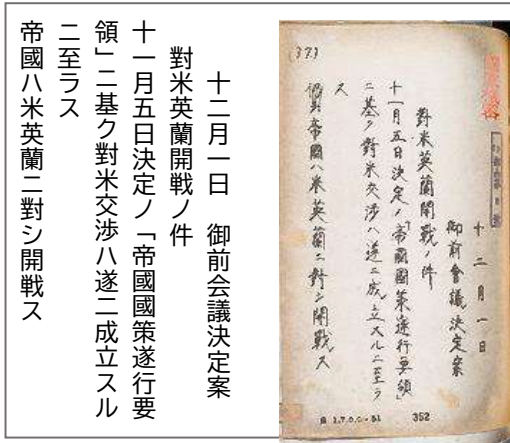 十二月一日
御前會議決定案
對米英蘭開戦ノ件
十一月五日決定ノ「帝國國策遂行要領」
ニ基ク對米交渉ハ遂ニ成立スルニ至ラ
ス
帝國ハ米英蘭ニ對シ開戦ス
352
十二月一日　御前会議決定案
對米英蘭開戦ノ件
十一月五日決定ノ「帝國國策遂行要
領」ニ基ク對米交渉ハ遂ニ成立スル
ニ至ラス
帝國ハ米英蘭ニ對シ開戦ス